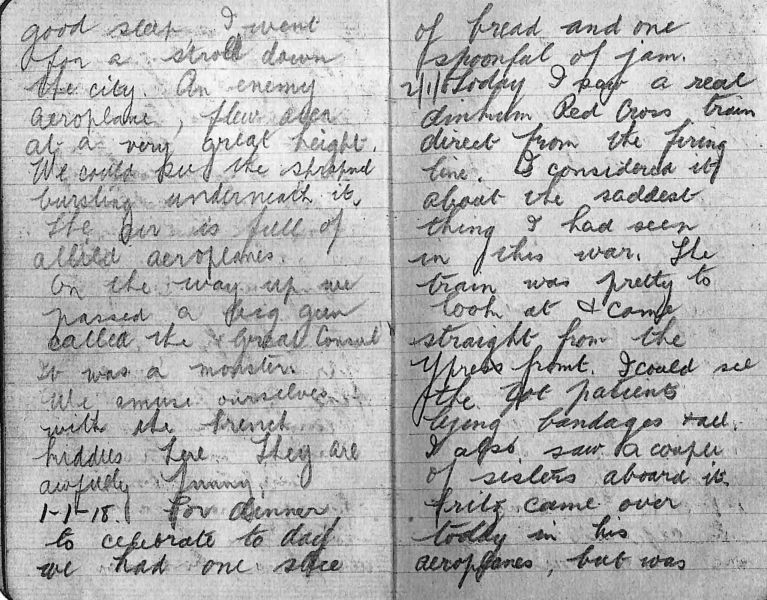 good sleep I went
for a stroll down
the city. An enemy
aeroplane, flew over
at a very great height.
We could see the shrapnel
bursting underneath it.
The air is full of
allied aeroplanes.
On the way up we
passed a big gun
called the Great Consul
It was a monster.
We amuse ourselves
with the french
kiddies here They are
awfully funny.
1-1-18. For dinner
to celebrate to day
we had one slice
of bread and one
spoonful of jam.
2/1/18 Today I saw a real
dinkum Red Cross train
direct from the firing
line. I considered it
about the saddest
thing I had seen
in this war. The
train was pretty to
look at & came
straight from the
Ypress front. I could see
the cot patients
lying bandages & all.
I also saw a couple
of sisters aboard it.
Fritz came over
today in his
aeroplanes, but was